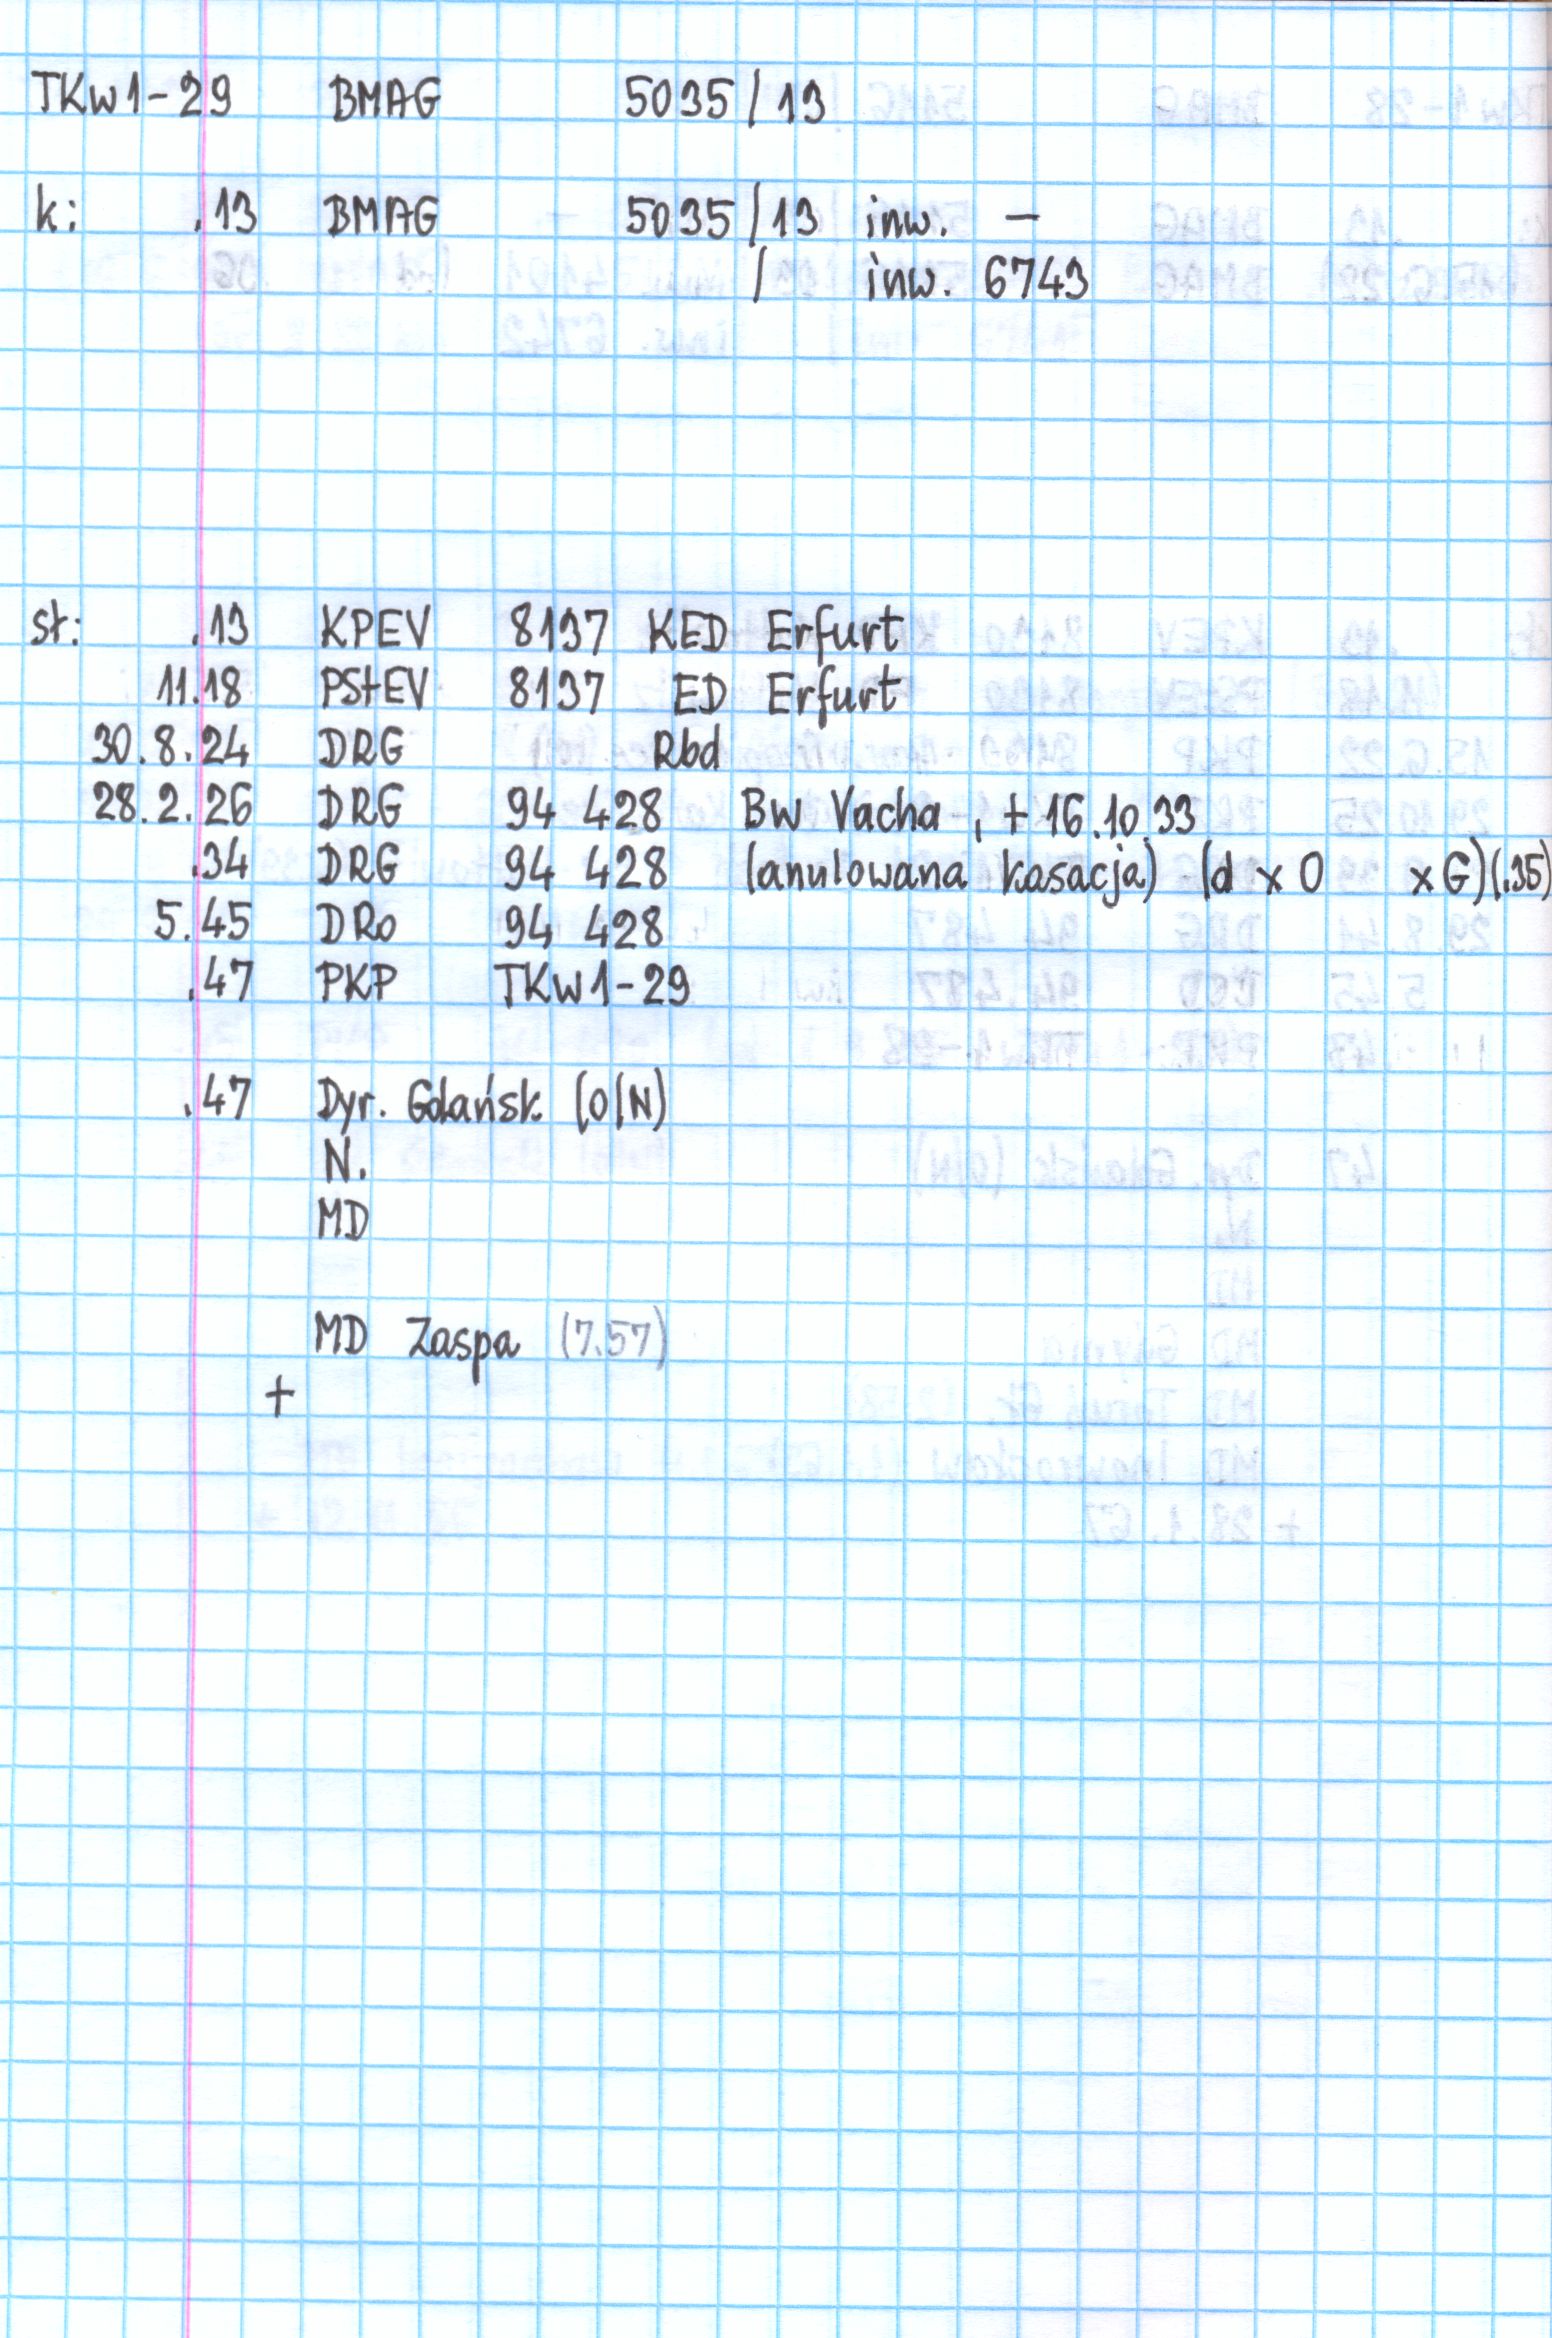 TKw1-29 BMAG 5035/13
k: .13 BMAG 5035/13 inw. —
/ inw. 6743
st: .13 KPEV 8137 KED Erfurt
11.18 PStEV 8137 ED Erfurt
30.8.24 DRG Rbd
28.2.26 DRG 94 428 Bw Vacha , + 16.10.33
.34 DRG 94 428 (anulowana kasacja) (d x O x G)(.35)
5.45 DRo 94 428
.47 PKP TKw1-29
.47 Dyr. Gdańsk (O/N)
N.
MD
MD Zaspa (7.57)
+